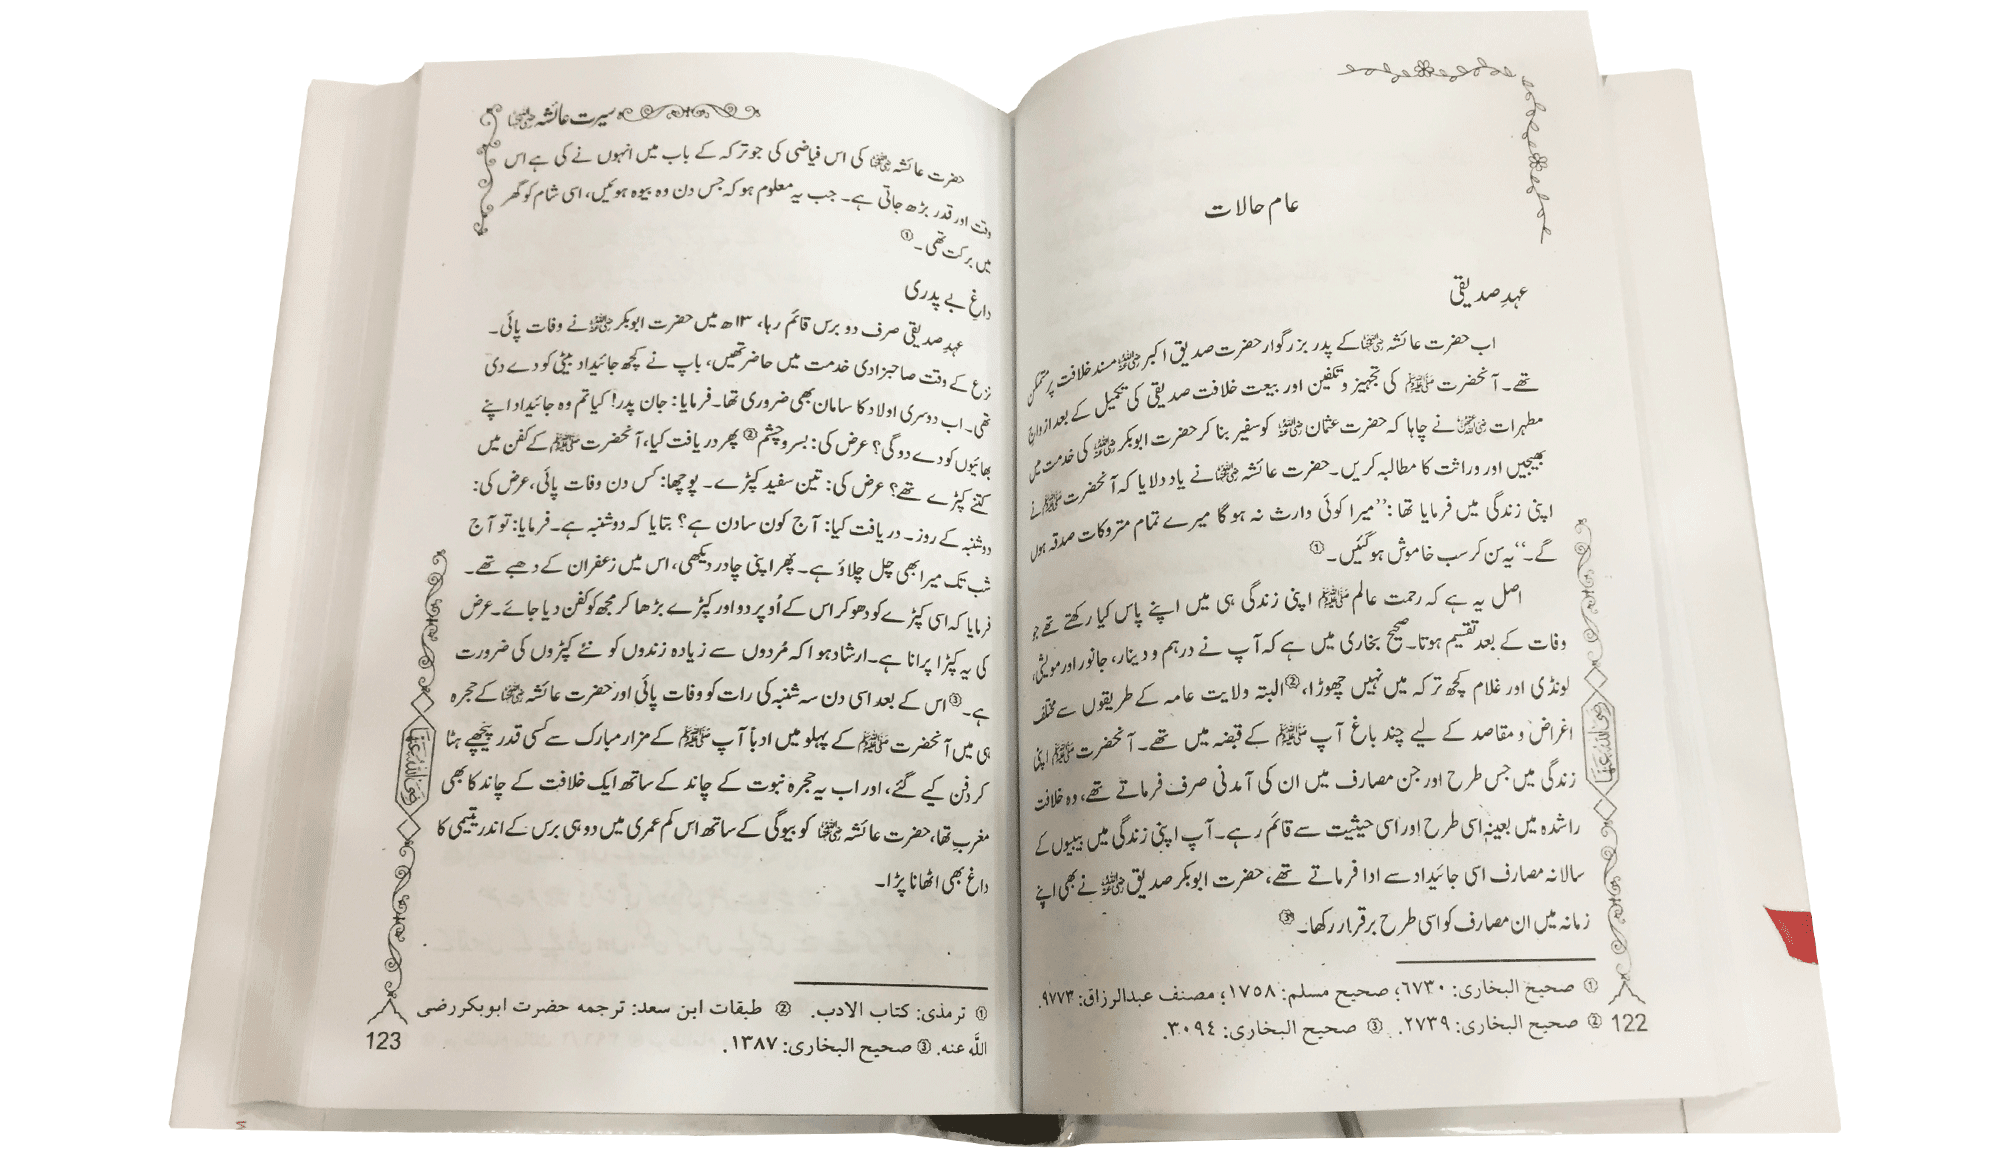 عام حالات
عہدِ صدیقی
اب حضرت عائشہ رضی اللہ عنہا کے پدر بزرگوار حضرت صدیق اکبر رضی اللہ عنہ مسند خلافت پر متمکن
تھے۔ آنحضرت ﷺ کی تجہیز و تکفین اور بیعت خلافت صدیقی کی تکمیل کے بعد ازواج
مطہرات رضی اللہ عنہن نے چاہا کہ حضرت عثمان رضی اللہ عنہ کو سفیر بنا کر حضرت ابوبکر رضی اللہ عنہ کی خدمت میں
بھیجیں اور وراثت کا مطالبہ کریں۔ حضرت عائشہ رضی اللہ عنہا نے یاد دلایا کہ آنحضرت ﷺ نے
اپنی زندگی میں فرمایا تھا: ’’میرا کوئی وارث نہ ہوگا میرے تمام متروکات صدقہ ہوں
گے۔‘‘ یہ سن کر سب خاموش ہوگئیں۔①
اصل یہ ہے کہ رحمت عالم ﷺ اپنی زندگی ہی میں اپنے پاس کیا رکھتے تھے جو
وفات کے بعد تقسیم ہوتا۔ صحیح بخاری میں ہے کہ آپ نے درہم و دینار، جانور اور مویشی،
لونڈی اور غلام کچھ ترکہ میں نہیں چھوڑا،② البتہ ولایت عامہ کے طریقوں سے مختلف
اغراض و مقاصد کے لیے چند باغ آپ ﷺ کے قبضہ میں تھے۔ آنحضرت ﷺ اپنی
زندگی میں جس طرح اور جن مصارف میں ان کی آمدنی صرف فرماتے تھے، وہ خلافت
راشدہ میں بعینہٖ اسی طرح اور اسی حیثیت سے قائم رہے۔ آپ اپنی زندگی میں بیبیوں کے
سالانہ مصارف اسی جائیداد سے ادا فرماتے تھے، حضرت ابوبکر صدیق رضی اللہ عنہ نے بھی اپنے
زمانہ میں ان مصارف کو اسی طرح برقرار رکھا۔③
① صحیح البخاری: ٦٧٣٠؛ صحیح مسلم: ١٧٥٨؛ مصنف عبدالرزاق: ٩٧٧٣.
② صحیح البخاری: ٢٧٣٩. ③ صحیح البخاری: ٣٠٩٤.
122
رضی اللہ عنہا
سیرت عائشہ رضی اللہ عنہا
حضرت عائشہ رضی اللہ عنہا کی اس فیاضی کی جو ترکہ کے باب میں انہوں نے کی ہے اس
وقت اور قدر بڑھ جاتی ہے۔ جب یہ معلوم ہو کہ جس دن وہ بیوہ ہوئیں، اسی شام کو گھر
میں برکت تھی۔①
داغِ بے پدری
عہدِ صدیقی صرف دو برس قائم رہا، ۱۳ھ میں حضرت ابوبکر رضی اللہ عنہ نے وفات پائی۔
نزع کے وقت صاحبزادی خدمت میں حاضر تھیں، باپ نے کچھ جائیداد بیٹی کو دے دی
تھی۔ اب دوسری اولاد کا سامان بھی ضروری تھا۔ فرمایا: جان پدر! کیا تم وہ جائیداد اپنے
بھائیوں کو دے دوگی؟ عرض کی: بسرو چشم② پھر دریافت کیا، آنحضرت ﷺ کے کفن میں
کتنے کپڑے تھے؟ عرض کی: تین سفید کپڑے۔ پوچھا: کس دن وفات پائی، عرض کی:
دوشنبہ کے روز۔ دریافت کیا: آج کون سا دن ہے؟ بتایا کہ دوشنبہ ہے۔ فرمایا: تو آج
شب تک میرا بھی چل چلاؤ ہے۔ پھر اپنی چادر دیکھی، اس میں زعفران کے دھبے تھے۔
فرمایا کہ اسی کپڑے کو دھو کر اس کے اُوپر دو اور کپڑے بڑھا کر مجھ کو کفن دیا جائے۔ عرض
کی یہ کپڑا پرانا ہے۔ ارشاد ہوا کہ مُردوں سے زیادہ زندوں کو نئے کپڑوں کی ضرورت
ہے۔③ اس کے بعد اسی دن سہ شنبہ کی رات کو وفات پائی اور حضرت عائشہ رضی اللہ عنہا کے حجرہ
ہی میں آنحضرت ﷺ کے پہلو میں ادباً آپ ﷺ کے مزار مبارک سے کسی قدر پیچھے ہٹا
کر دفن کیے گئے، اور اب یہ حجرہ نبوت کے چاند کے ساتھ ایک خلافت کے چاند کا بھی
مغرب تھا، حضرت عائشہ رضی اللہ عنہا کو بیوگی کے ساتھ اس کم عمری میں دو ہی برس کے اندر یتیمی کا
داغ بھی اٹھانا پڑا۔
① ترمذی: کتاب الادب. ② طبقات ابن سعد: ترجمہ حضرت ابوبکر رضی
اللّٰہ عنہ. ③ صحیح البخاری: ١٣٨٧.
123
رضی اللہ عنہا